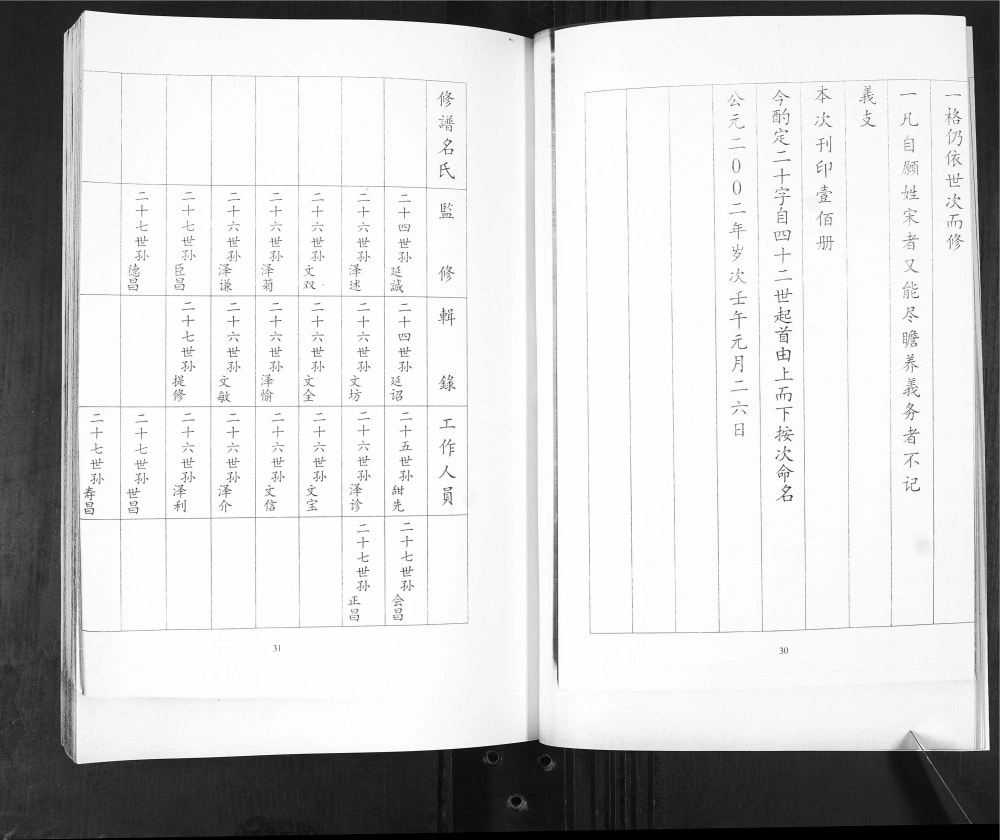 一格仍依世次而修
一凡自願姓宋者又能尽瞻养義务者不记
義支
本次刊印壹佰册
今酌定二十字自四十二世起首由上而下按次命名
公元二00二年岁次壬午元月二六日
30
修譜名氏
監修
二十四世孙延誠
二十六世孙泽述
二十六世孙文双
二十六世孙泽菊
二十六世孙泽谦
二十七世孙臣昌
二十七世孙德昌
輯錄
二十四世孙延诏
二十六世孙文坊
二十六世孙文全
二十六世孙泽愉
二十六世孙文敏
二十七世孙提修
工作人員
二十五世孙甜先
二十六世孙泽诊
二十六世孙文宝
二十六世孙文信
二十六世孙泽介
二十六世孙泽利
二十七世孙世昌
二十七世孙寿昌
二十七世孙会昌
二十七世孙正昌
31